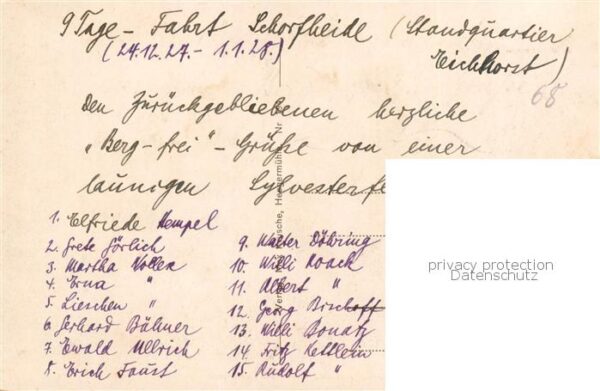 9 Tage - Fahrt Schorfheide (Standquartier
(24.12.27. - 1.1.28.) Eichhorst)
68
Den Zurückgebliebenen herzliche
„Berg-frei" - Grüße von einer
launigen Sylvesterfe
1. Elfriede Hempel
2. Grete Görlich
3. Martha Nollen
4. Erna "
5. Lieschen "
6. Gerhard Bühner
7. Ewald Ullrich
8. Erich Faust
9. Walter Döhring
10. Willi Noack
11. Albert "
12. Georg Bischoff
13. Willi Donatz
14. Fritz Kettlein
15. Rudolf "
privacy protection
Datenschutz